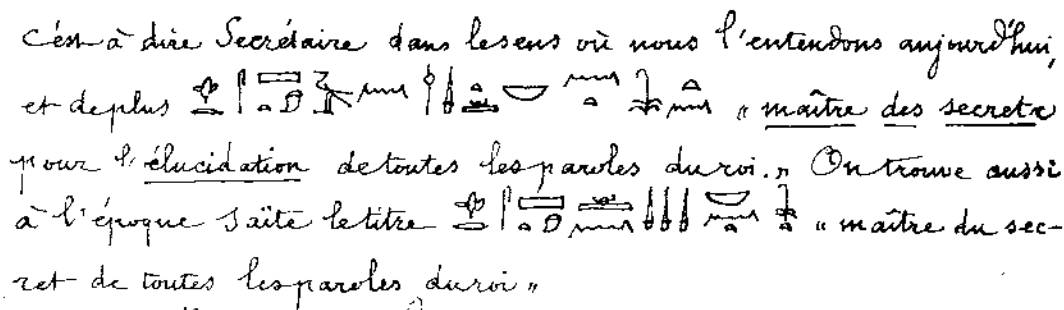 c'est à dire Secrétaire dans le sens où nous l'entendons aujourd'hui,
et de plus « maître des secrets
pour l'élucidation de toutes les paroles du roi. » On trouve aussi
à l'époque Saïte le titre « maître du sec-
ret de toutes les paroles du roi »